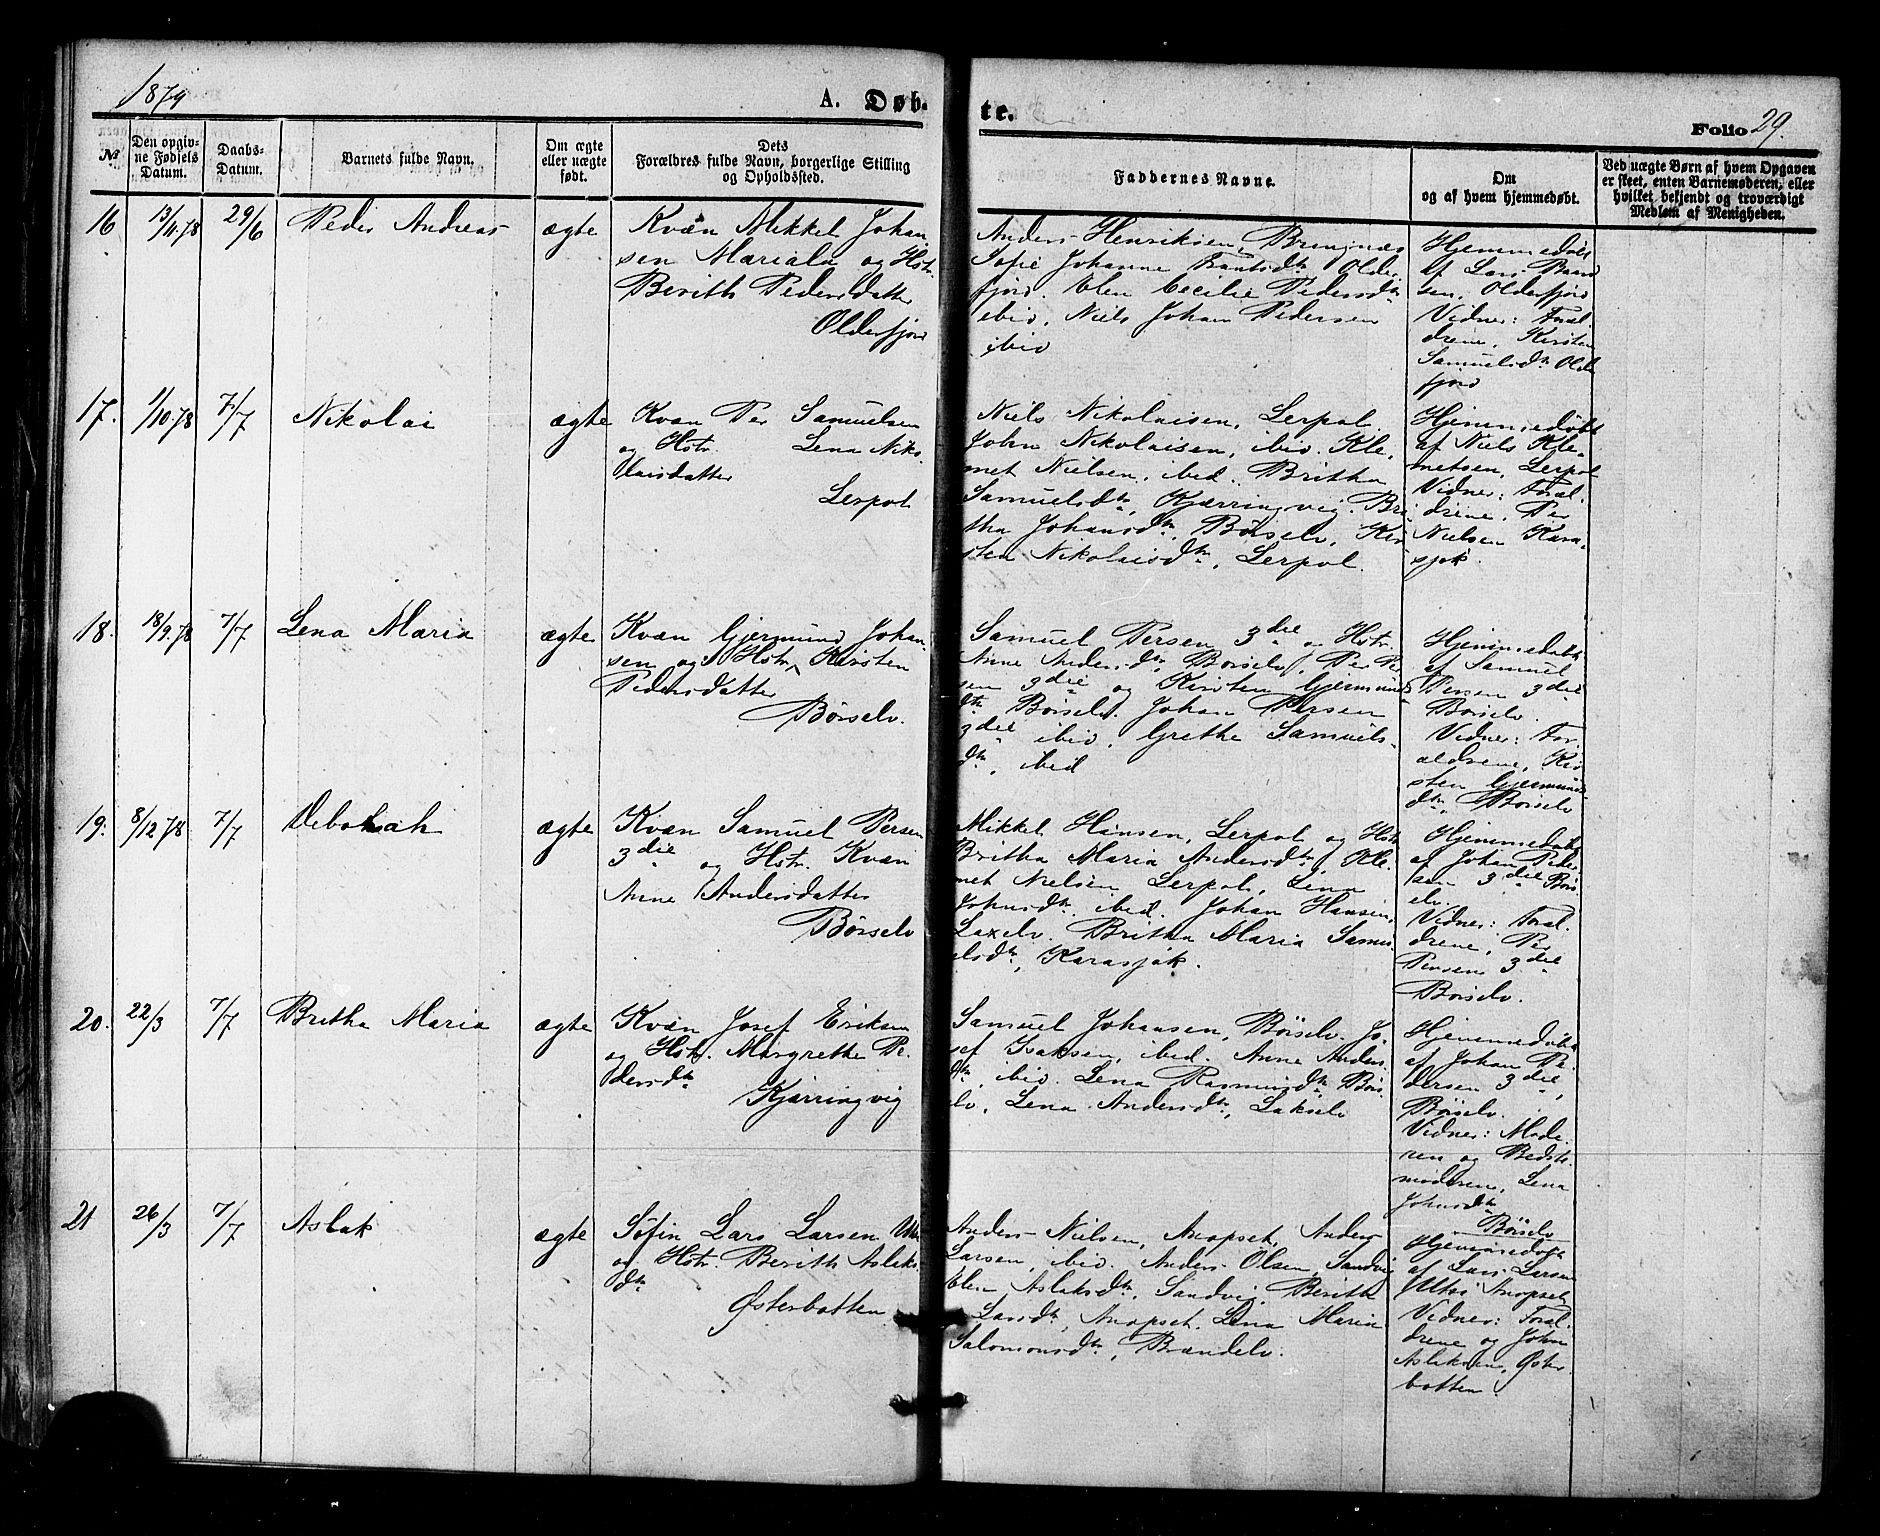 1879
A. Døb-
te.
Folio 29.
№
Den opgiv-
ne Fødsels
Datum.
Daabs-
Datum.
Barnets fulde Navn.
Om ægte
eller uægte
født.
Dets
Forældres fulde Navn, borgerlige Stilling
og Opholdssted.
Faddernes Navne.
Om
og af hvem hjemmedøbt.
Ved uægte Børn af hvem Opgaven
er skeet, enten Barnemoderen, eller
hvilket bekjendt og troværdigt
Medlem af Menigheden.
16
13/11.78
29/6
Peder Andreas
ægte
Kvæn Mikkel Johan
sen Mariala og Hstr.
Berith Pedersdatter
Olderfjord
Anders Henriksen,
Sofie Johanne Older
fjord. Elen Cecilie Pedersdtr
ibid, Niels Johan Pedersen
ibid
Hjemmedøbt
af Lars
sen, Olderfjord
Vidner: Foræl.
drene, Kirsten
Samuelsdtr Olde
fjord
17.
1/10.78
7/7
Nikolai
ægte
Kvæn Per Samuelsen
og Hstr. Lena Niko
laisdatter
Lerpol
Niels Nikolaisen, Lerpol.
John Nikolaisen, ibid. Kle,
met Nielsen, ibid. Britha
Samuelsdtr, Kjærringvig. Bri
tha Johansdtr, Børselv, Kir
sten Nikolaisdtr, Lerpol.
Hjemmedøbt
af Niels Kle-
metsen, Lerpol
Vidner: Foræl.
drene, Per
Nielsen Kara-
sjok.
18.
18/9.78
7/7
Lena Maria
ægte
Kvæn Gjermund Johan-
sen og Hstr. Kirsten
Pedersdatter
Børselv.
Samuel Persen 3die og Hstr.
Anne Andersdtr, Børselv, Per Per
sen 3die og Kirsten Gjermunds
dtr Børselv. Johan Persen
3die ibid, Grethe Samuels-
dtr, ibid
Hjemmedøbt
af Samuel
Persen 3die
Børselv.
Vidner: For.
ældrene, Kir
sten Gjermunds
dtr, Børselv
19.
8/12 78
7/7
Deborah
ægte
Kvæn Samuel Persen
3die og Hstr. Kvæn
Anne Andersdatter
Børselv
Mikkel Hansen, Lerpol og Hstr
Britha Maria Andersdtr, Kle.
met Nielsen Lerpol, Lena
Johnsdtr, ibid. Johan Hansen,
Laxelv. Britha Maria Samu
elsdtr, Karasjok.
Hjemmedøbt
af Johan Peder
sen 3die Børs
elv.
Vidner: Foræl.
drene, Per
Persen 3die
Børselv.
20.
22/3
7/7
Britha Maria
ægte
Kvæn Josef Eriksen
og Hstr. Margrethe Pe.
dersdtr
Kjærringvig
Samuel Johansen, Børselv. Jo.
sef Isaksen, ibid. Anne Anders
dtr, ibid. Lena Rasmusdtr Børs.
elv, Lena Andersdtr, Lakselv
Hjemmedøbt
af Johan Pe
dersen 3die,
Børselv.
Vidner: Mode.
ren og Bedste.
moderen, Lena
Johnsdtr
Børselv
21
26/3
7/7
Aslak
ægte
Søfin Lars Larsen
og Hstr. Berith Aslaks
dtr
Østerbotten
Anders Nielsen, Anopset, Anders
Larsen, ibid. Anders Olsen, Sandvig
Elen Aslaksdtr, Sandvig, Berith
Larsdtr, Anopset. Lena Maria
Salomonsdtr, Brændelv.
Hjemmedøbt
af Lars Larsen
Utsi Anopset
Vidner: Foræl.
drene og John
Aslaksen, Øster
botten.